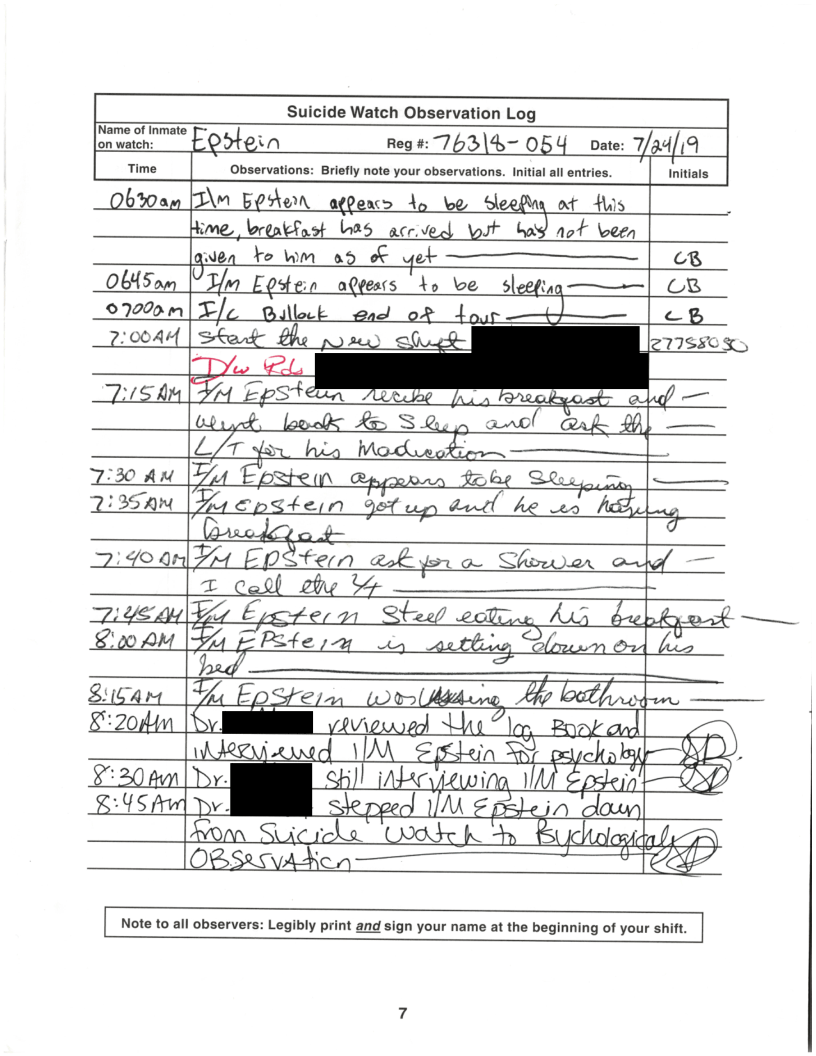 Suicide Watch Observation Log
Name of Inmate on watch: Epstein Reg #: 76318-054 Date: 7/24/19
Time Observations: Briefly note your observations. Initial all entries. Initials
0630am I\M Epstein appears to be sleeping at this
time, breakfast has arrived but has not been
given to him as of yet CB
0645am I/m Epstein appears to be sleeping CB
0700am I/c Bullock end of tour CB
7:00AM start the New shift
D/w Rds
7:15AM I/M EPStein recibe his breakfast and
went back to Sleep and ask the
L/T for his Madication
7:30 AM I/M EPstein appears tobe Sleeping
7:35AM I/M EPStein got up and he is having
breakfast
7:40 AM I/M EPStein ask for a Shower and
I call the L/t
7:45AM I/M Epstein Steel eating his breakfast
8:00 AM I/M EPStein is setting down on his
bed
8:15AM I/M EpStein was using the bathroom
8:20Am Dr. reviewed the log BOOK and
interviewed I/M Epstein for psychology
8:30Am Dr. still interviewing I/M Epstein
8:45Am Dr. stepped I/M Epstein down
from Suicide watch to Psychological
OBServAtion
Note to all observers: Legibly print and sign your name at the beginning of your shift.
7